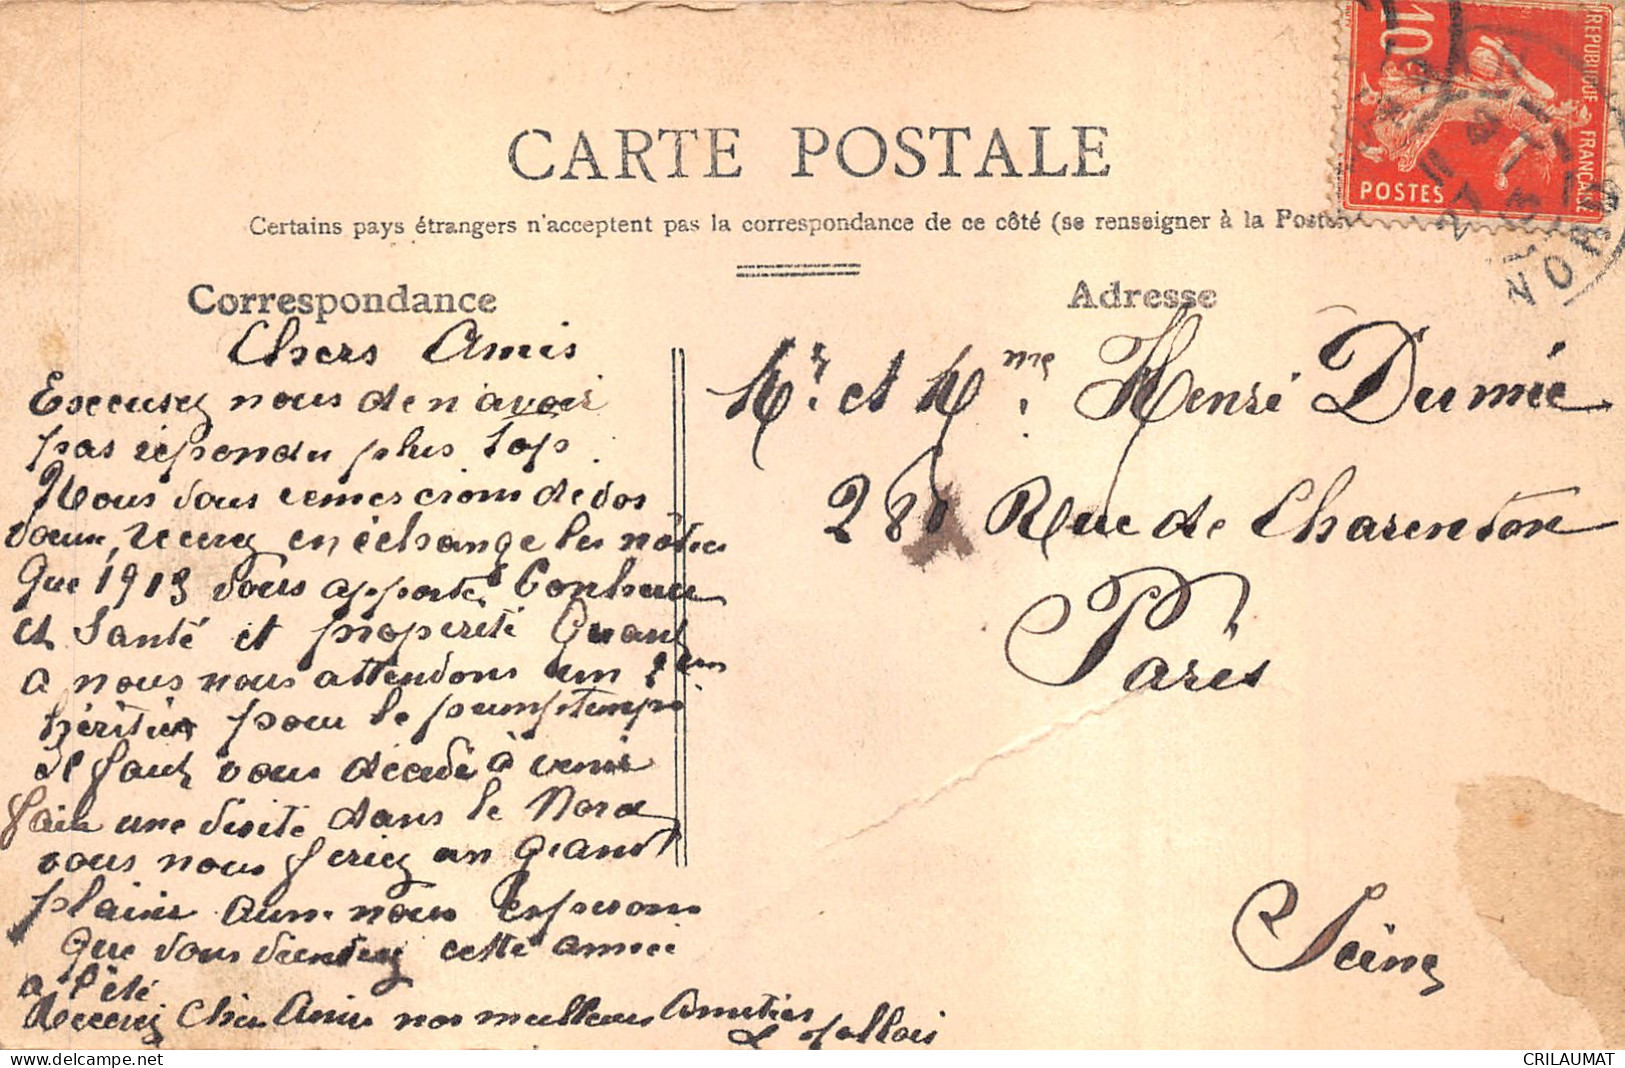 CARTE POSTALE
Certains pays étrangers n'acceptent pas la correspondance de ce côté (se renseigner à la Poste
Correspondance
Adresse
10
REPUBLIQUE FRANÇAISE
POSTES
NORD
Chers Amis
Excusez nous de n'avoir
pas répondu plus top.
Nous vous remercions de vos
vœux, recevez en échange les nôtres
Que 1913 vous apporte Bonheur
et Santé et properité Quant
a nous nous attendons un 2em
héritier pour le pumptemps
Il faut vous décidé à venir
fair une visite dans le Nord
vous nous feriez un grand
plaisir aussi nous esperons
que vous viendrez cette année
a l'été
Recevez Chers Amis nos meilleurs Amitiés
L Mallois
Mr. et Mme. Henri Dumée
280 Rue de Charenton
Paris
Seine
CRILAUMAT